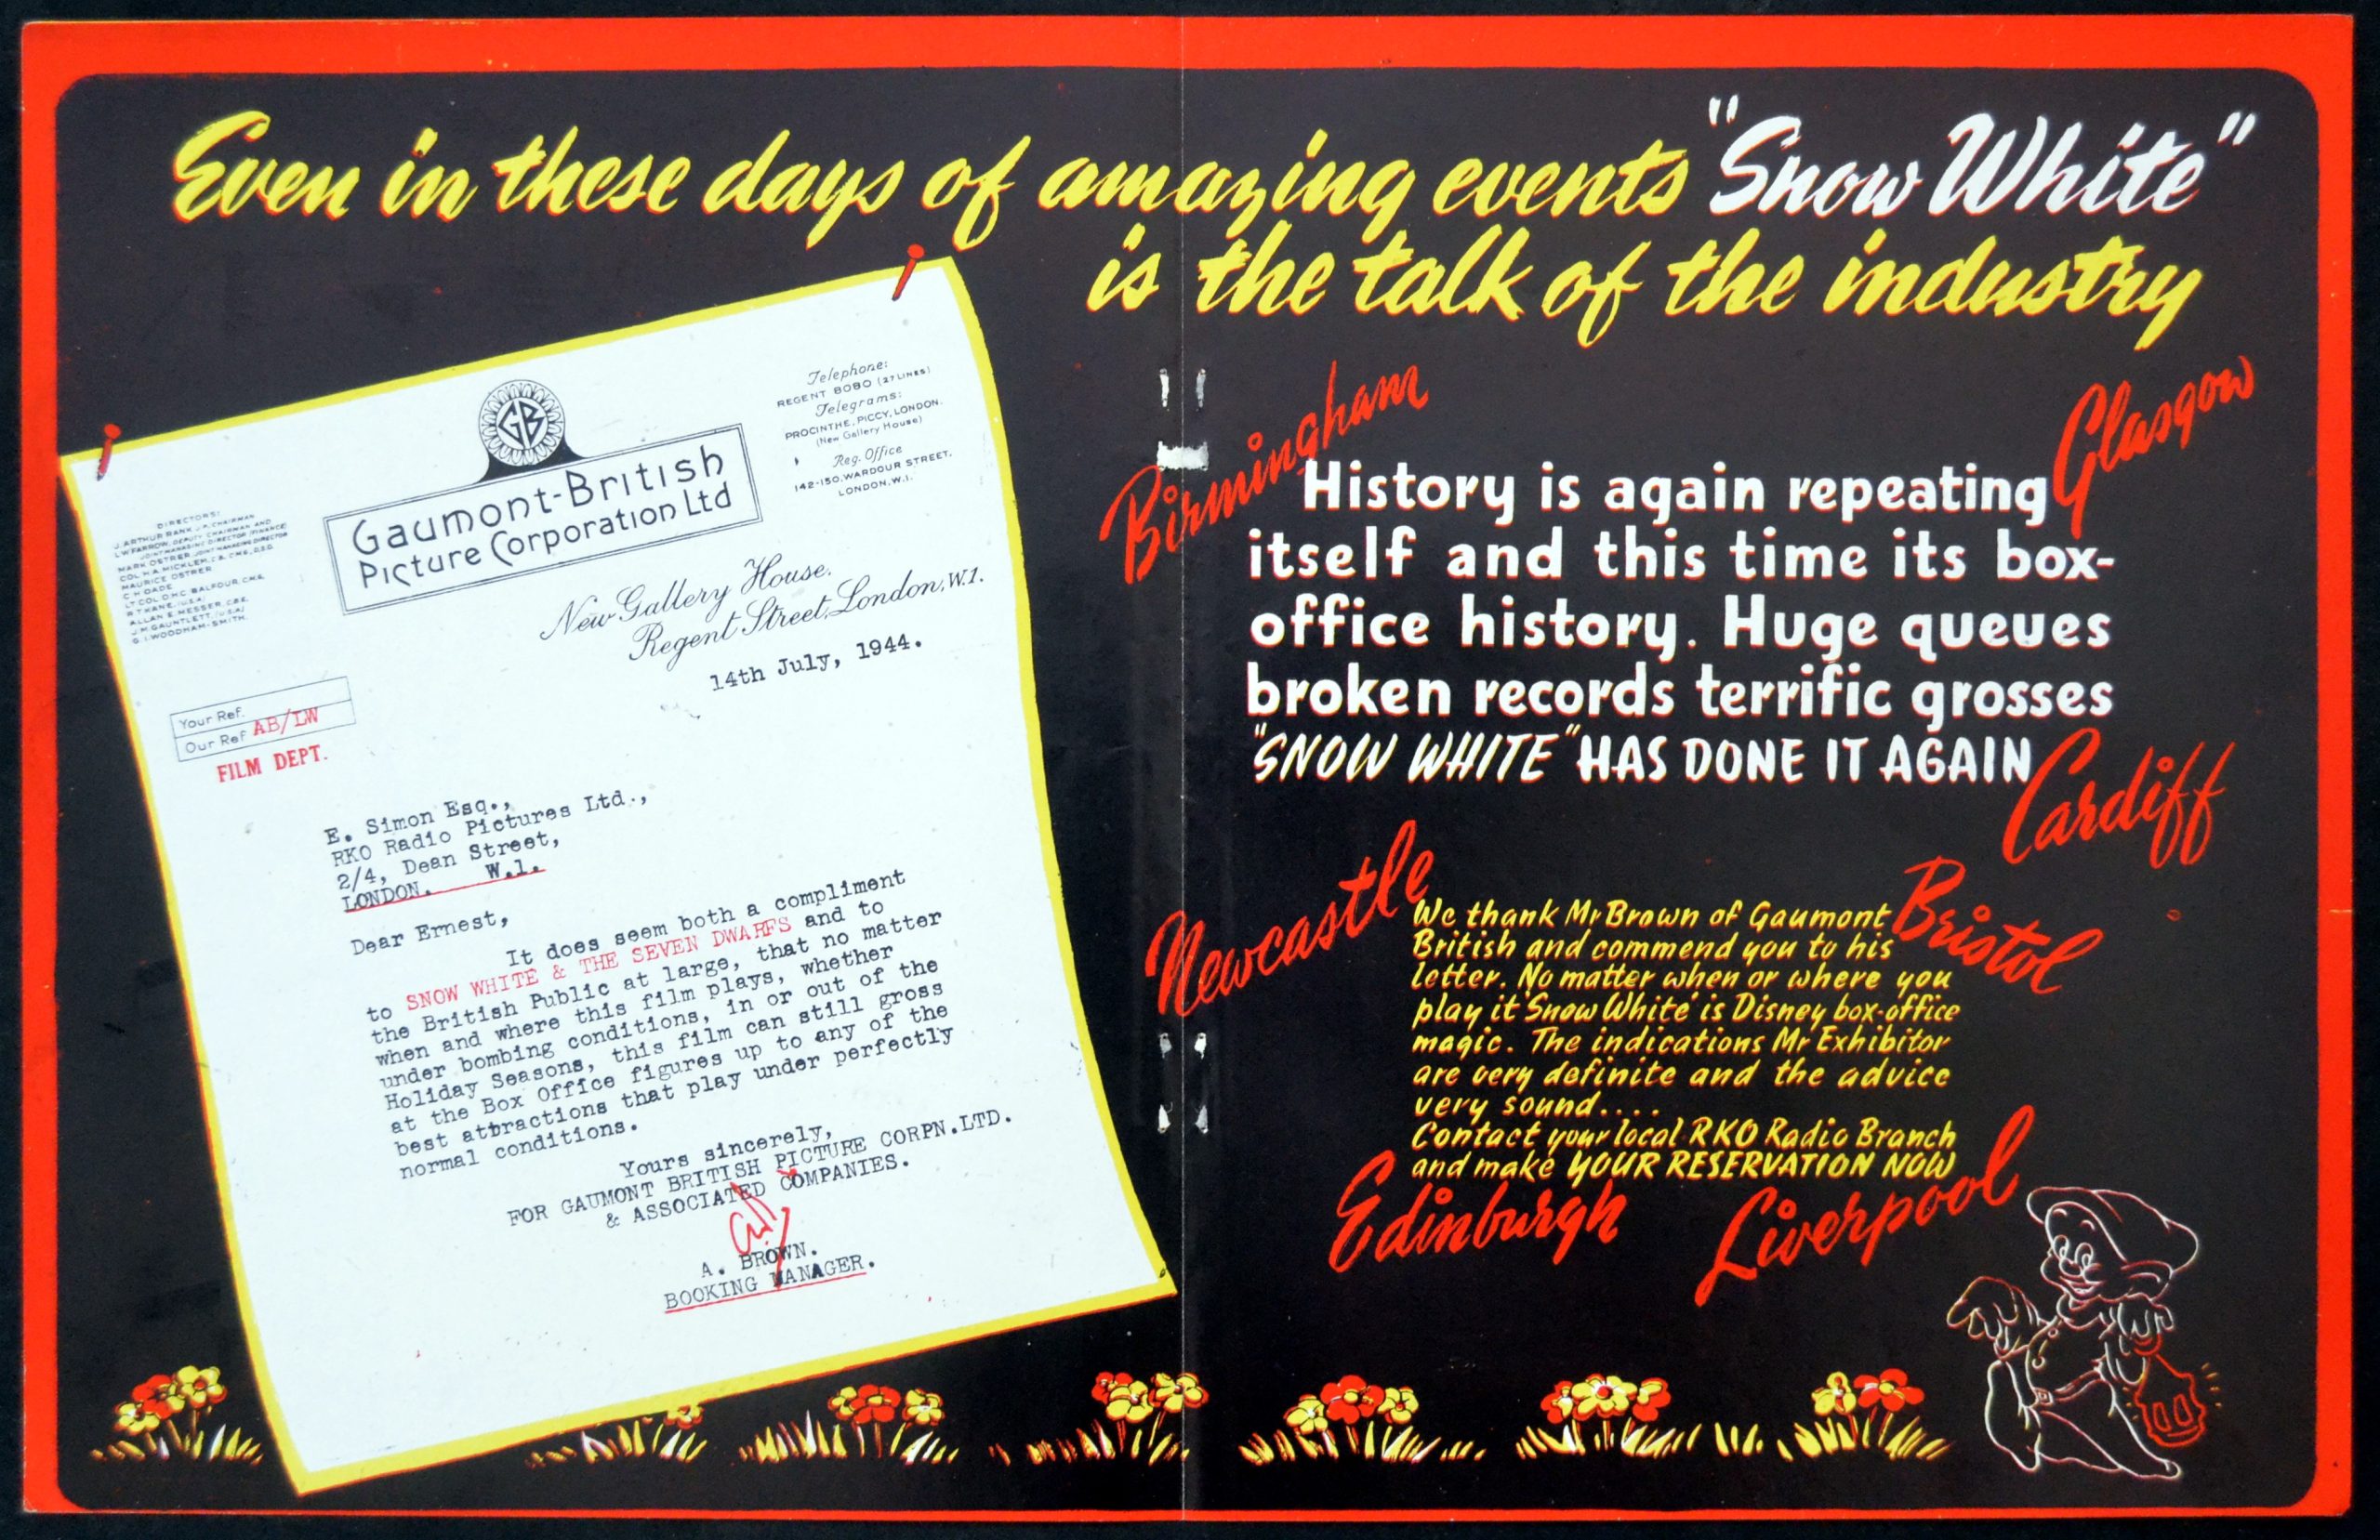 Even in these days of amazing events "Snow White"
is the talk of the industry
Telephone:
REGENT 8080 (27 LINES)
Telegrams:
PROCINTHE, PICCY, LONDON.
(New Gallery House)
Reg. Office
142-150, WARDOUR STREET,
LONDON, W.I.
GB
Gaumont-British
Picture Corporation Ltd
DIRECTORS:
J. ARTHUR RANK J.P. CHAIRMAN
L.W. FARROW, DEPUTY CHAIRMAN AND
JOINT MANAGING DIRECTOR (FINANCE)
MARK OSTRER, JOINT MANAGING DIRECTOR
COL. H.A. MICKLEM, C.B. C.M.G., D.S.O.
MAURICE OSTRER
C H DADE
LT COL. D.H.C. BALFOUR, C.M.G.
R.T. KANE. (U.S.A)
ALLAN E. MESSER, C.B.E.
J.M. GAUNTLETT. (U.S.A)
G. I. WOODHAM-SMITH.
New Gallery House.
Regent Street, London, W.1.
14th July, 1944.
Your Ref.
Our Ref AB/LW
FILM DEPT.
E. Simon Esq.,
RKO Radio Pictures Ltd.,
2/4, Dean Street,
LONDON. W.1.
Dear Ernest,
It does seem both a compliment
to SNOW WHITE & THE SEVEN DWARFS and to
the British Public at large, that no matter
when and where this film plays, whether
under bombing conditions, in or out of the
Holiday Seasons, this film can still gross
at the Box Office figures up to any of the
best attractions that play under perfectly
normal conditions.
Yours sincerely,
FOR GAUMONT BRITISH PICTURE CORPN.LTD.
& ASSOCIATED COMPANIES.
A. BROWN.
BOOKING MANAGER.
Birmingham
Glasgow
History is again repeating
itself and this time its box-
office history. Huge queues
broken records terrific grosses
"SNOW WHITE" HAS DONE IT AGAIN
Cardiff
Newcastle
Bristol
We thank Mr Brown of Gaumont
British and commend you to his
letter. No matter when or where you
play it 'Snow White' is Disney box-office
magic. The indications Mr Exhibitor
are very definite and the advice
very sound....
Contact your local RKO Radio Branch
and make YOUR RESERVATION NOW
Edinburgh
Liverpool